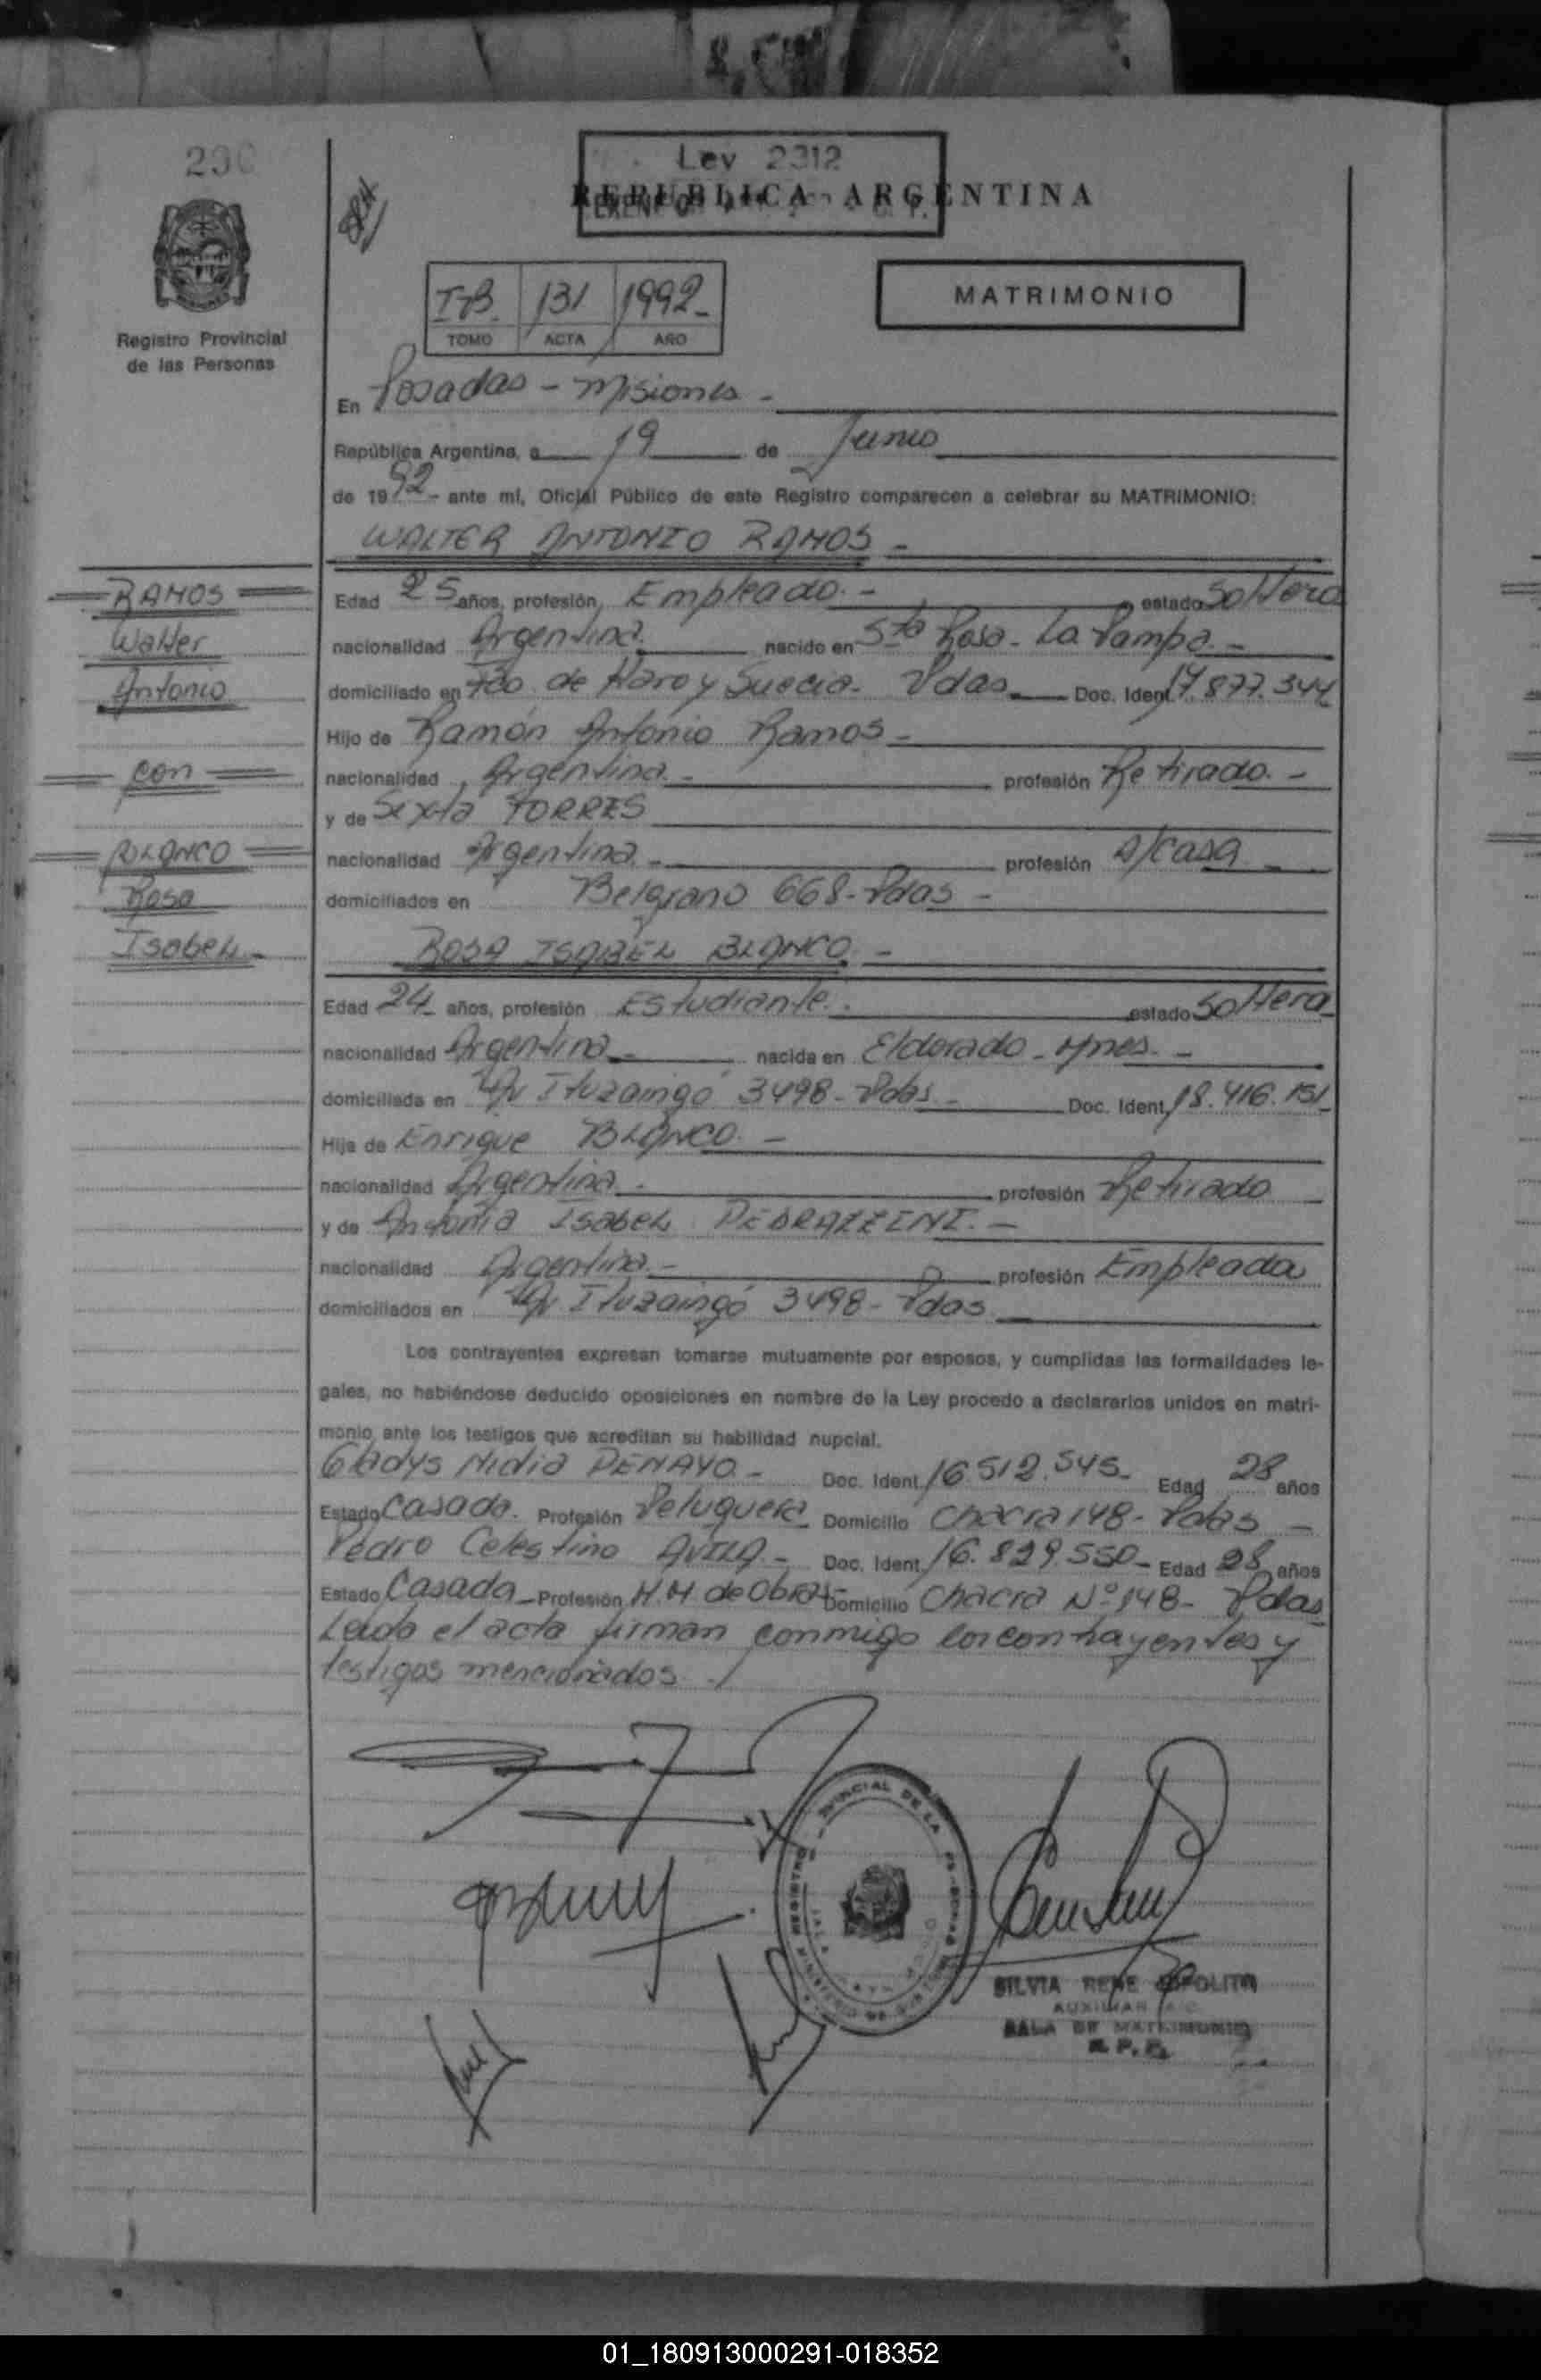 Ley 2312
REPUBLICA ARGENTINA
Registro Provincial
de las Personas
131 1992-
TOMO ACTA AÑO
MATRIMONIO
En Posadas - Misiones -
República Argentina, a 19 de Junio
de 1992- ante mí, Oficial Público de este Registro comparecen a celebrar su MATRIMONIO:
WALTER ANTONIO RAMOS -
RAMOS
Walter
Antonio
con
BLANCO
Rosa
Isabel
Edad 25 años, profesión, Empleado. - estado Soltero
nacionalidad Argentina. nacido en Sta Rosa - La Pampa. -
domiciliado en de Haro y Suecia - Pdas. Doc. Ident. 17.877.344
Hijo de Ramón Antonio Ramos -
nacionalidad Argentina. - profesión Retirado. -
y de Sixta TORRES
nacionalidad Argentina - profesión s/casa -
domiciliados en Belgrano 668 - Pdas -
ROSA ISABEL BLANCO. -
Edad 24 años, profesión Estudiante. estado Soltera
nacionalidad Argentina - nacida en Eldorado - Mnes. -
domiciliada en Av Ituzaingó 3498 - Pdas. - Doc. Ident. 18.416.151
Hija de Enrique BLANCO. -
nacionalidad Argentina - profesión Retirado
y de Antonia Isabel PEDRAZZINI. -
nacionalidad Argentina. - profesión Empleada
domiciliados en Av Ituzaingó 3498 - Pdas
Los contrayentes expresan tomarse mutuamente por esposos, y cumplidas las formalidades le-
gales, no habiéndose deducido oposiciones en nombre de la Ley procedo a declararlos unidos en matri-
monio ante los testigos que acreditan su habilidad nupcial.
Gladys Nidia PENAYO - Doc. Ident. 16.512.545- Edad 28 años
Estado Casada. Profesión Peluquera Domicilio Chacra 148 - Pdas -
Pedro Celestino AVILA - Doc. Ident. 16.829.550- Edad 28 años
Estado Casada - Profesión M.M de Obras Domicilio Chacra Nº 148 - Pdas
Leido el acta firman conmigo los contrayentes y
testigos mencionados
SILVIA RENE
AUXILIAR A/C
SALA DE MATRIMONIO
R. P. P.
01_180913000291-018352